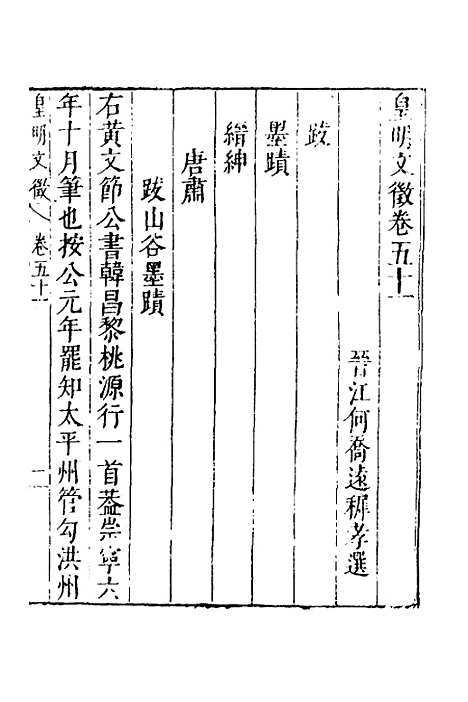 皇明文徵卷五十一
晉江何喬遠穉孝選
跋
墨蹟
縉紳
唐肅
跋山谷墨蹟
右黃文節公書韓昌黎桃源行一首葢崇寧六
年十月筆也按公元年罷知太平州管勾洪州
皇明文徵 卷五十一 一